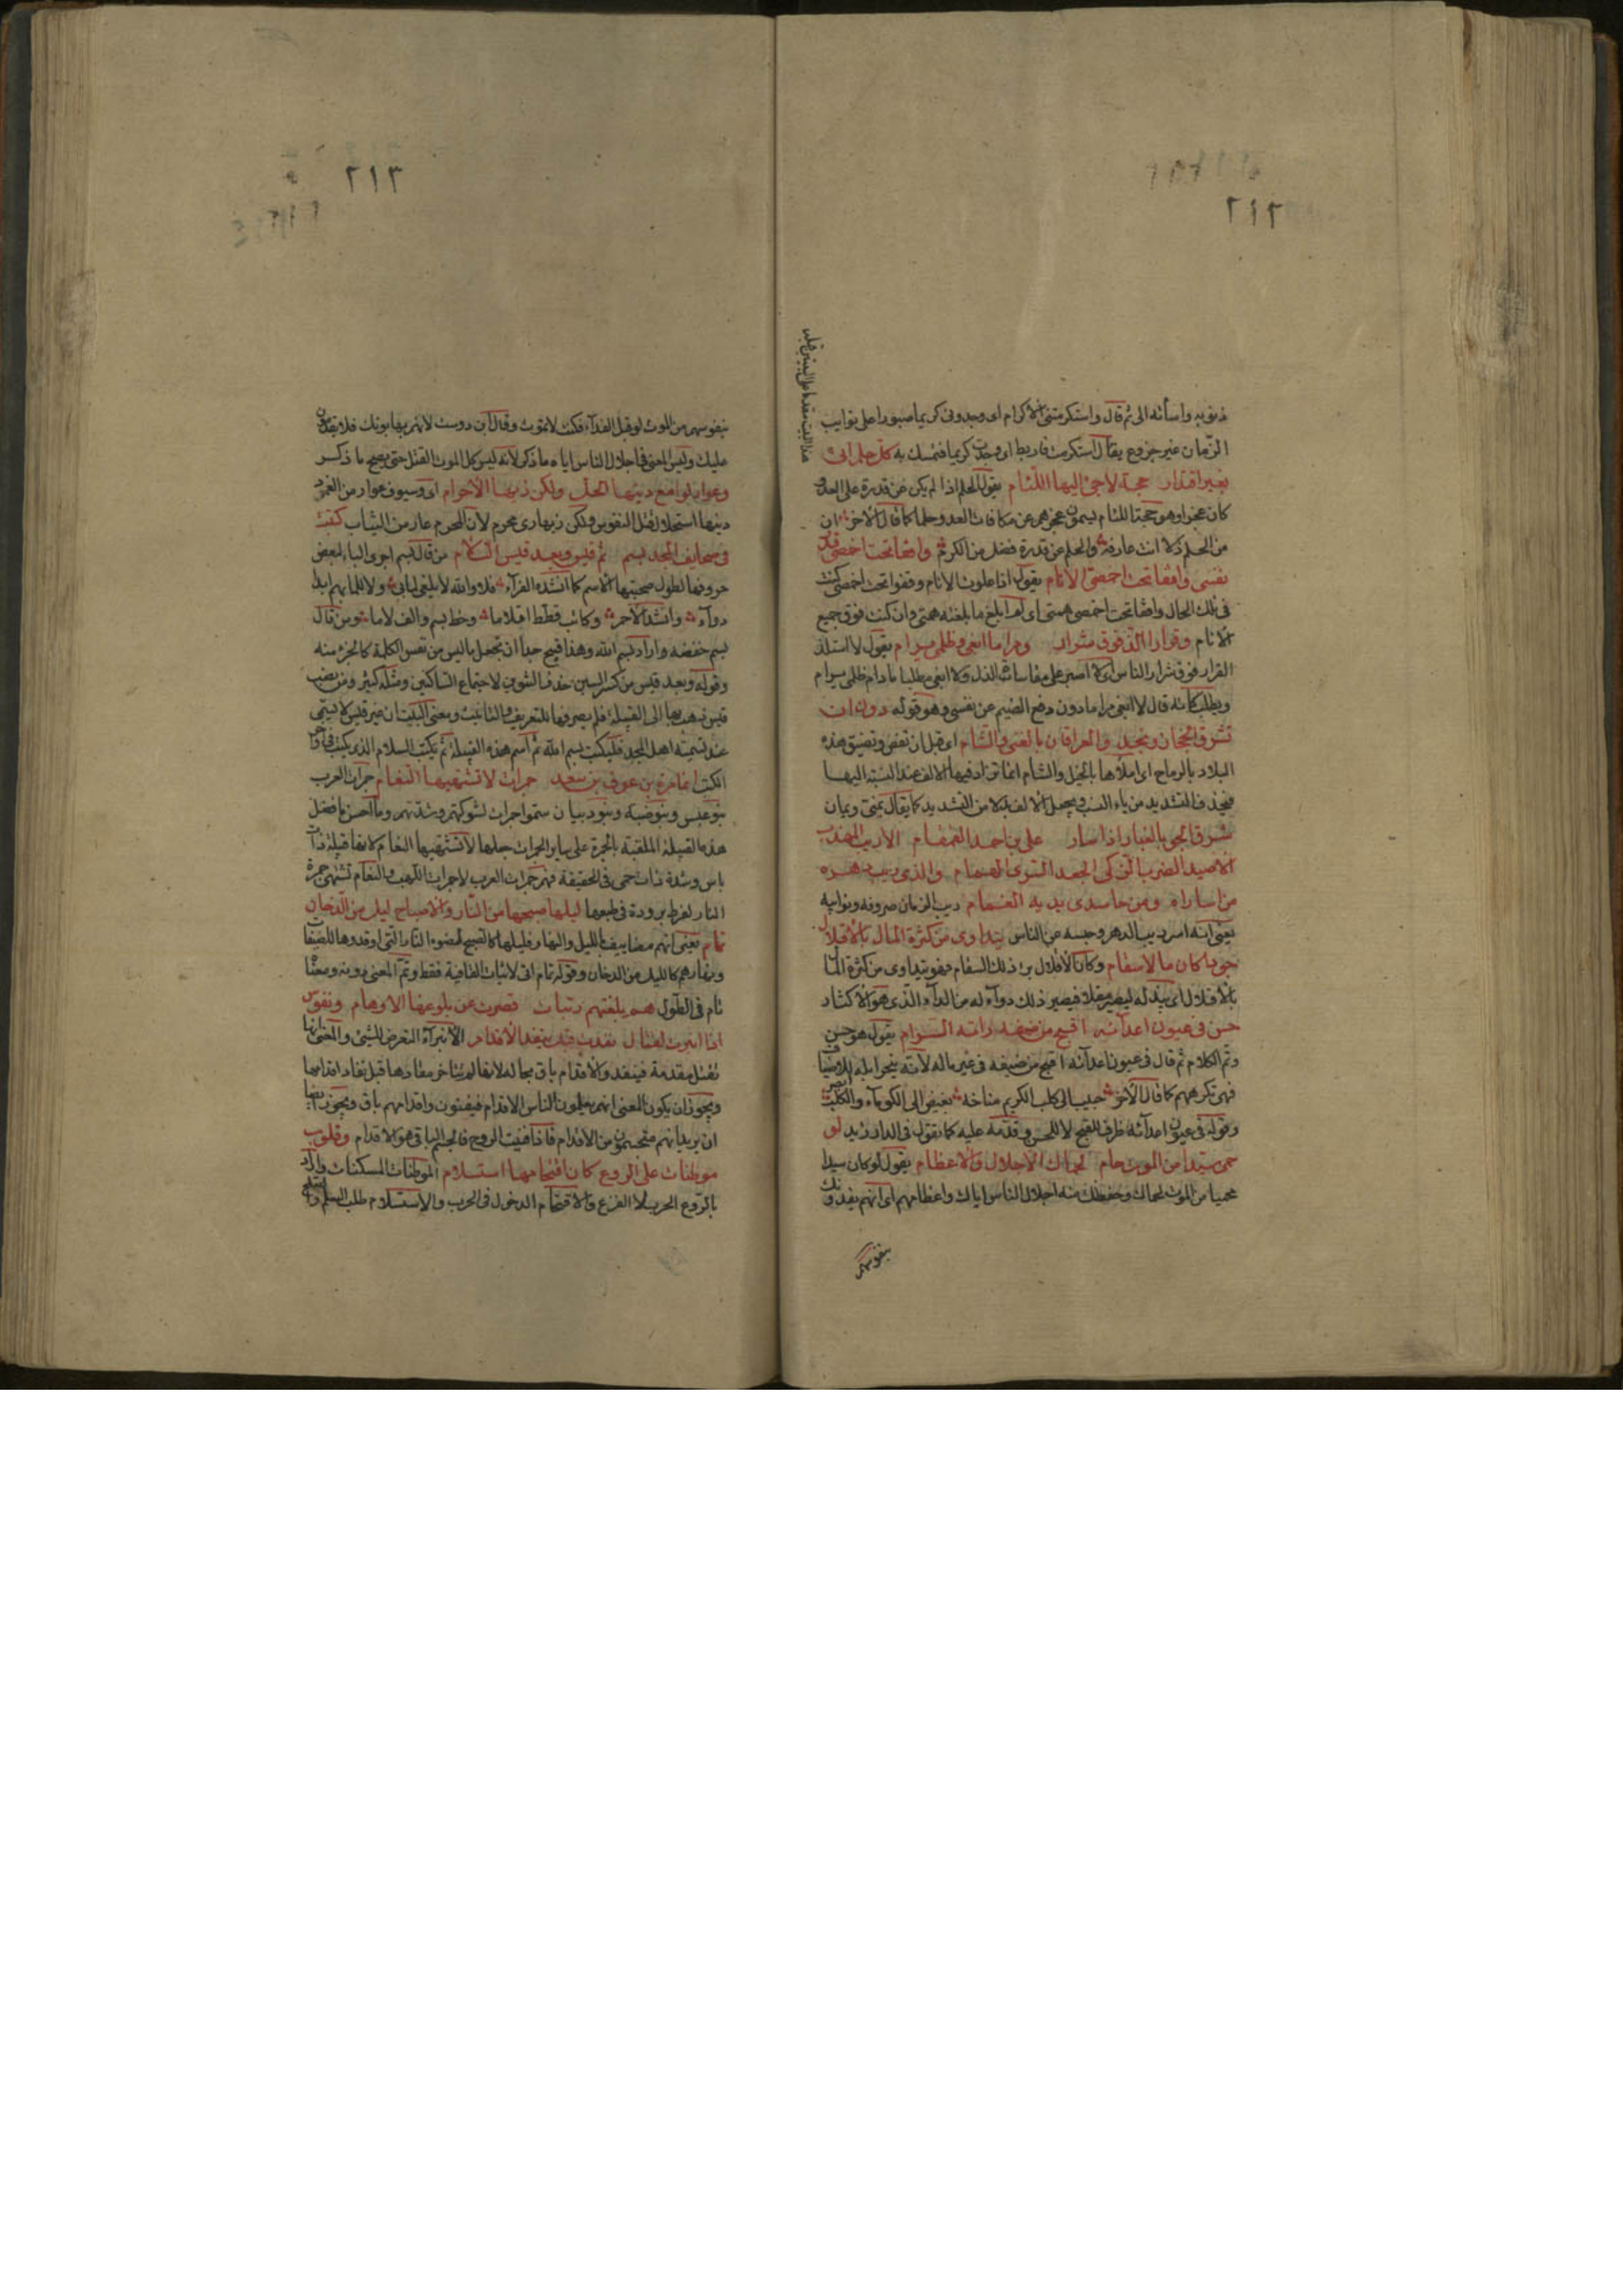 ٢١٢
ذنوبه واسأته الى ثم قال واستكرمتنى الاكرام اى وجدونى كريما صبورا على نوايب
الزمان غير جزوع يقال استكرمت فاربط اى وجدت كريما فتمسك به كل حلم اتى
بغير اقتدار حجة لاجئ اليها اللئام يقول الحلم اذا لم يكن عن قدرة على العدو
كان عجزا وهو حجة اللئام يسمون عجزهم عن مكافات العدو حلما كما قال الاخر ان
من الحلم ذلا انت عارفه والحلم عن قدرة فضل من الكرم واقفا تحت اخمصى قدر
نفسى واقفا تحت اخمصى الانام يقول اذا علوت الانام ووقفوا تحت اخمصى كنت
فى تلك الحال واقفا تحت اخمصى همتى اى لم ابلغ ما بلغته همتى وان كنت فوق جميع
الانام وقرارا الذ فوق شرار ومراما ابغى وظلمى يرام يقول لا استلذ
القرار فوق شرار الناس اى لا اصبر على مقاساة الذل ولا ابغى مطلبا ما دام ظلمى يرام
ويطلب كانه قال لا ابغى مراما دون دفع الضيم عن نفسى وهو قوله دون ان
تشرق الحجاز ونجد والعراقان بالقنى والشام اى قبل ان تغص وتضيق هذه
البلاد بالرماح اى املأها بالخيل والشام انما تزاد فيها الالف عند النسبة اليها
فيحذف التشديد من ياء النسب ويجعل الالف بدلا من التشديد كما يقال يمنى ويمان
شرق الجو بالغبار اذا سار على بن احمد القمقام الاديب المهذب
الاصيد الضرب الذكى الجعد السرى الهمام والذى ريب دهره
من اساراه ومن حاسدى يديه الغمام ريب الزمان صروفه ونوايبه
يعنى انه اسر ريب الدهر وحبسه عن الناس يتداوى من كثرة المال بالاقلال
جودا كان مالا سقام وكان الاقلال برء ذلك السقام فهو يتداوى من كثرة المال
بالاقلال اى يبذله ليصير مقلا فيصير ذلك دواء له من الداء الذى هو الاكثار
حسن فى عيون اعدائه اقبح من ضيفه راته السوام يقول هو حسن
وتم الكلام ثم قال فى عيون اعدائه اقبح من ضيفه فى عين ماله لانه ينحر ابله للاضياف
فهى تكرههم كما قال الاخر حبيب الى كلب الكريم مناخه بغيض الى الكوماء والكلب
وقوله فى عيون اعدائه ظرف للقبح لا للحسن وقدمه عليه كما يقول فى الدار زيد لو
حمى سيدا من الموت حام لحماك الاجلال والاعظام يقول لو كان سيدا
محميا من الموت لحماك وحفظك منه اجلال الناس اياك واعظامهم اى انهم يفدونك
بنفوسهم
٢١٣
بنفوسهم من الموت لو قبل الفداء فكنت لا تموت وقال ابن دوست لانهم يهابونك فلا يقدمون
عليك وليس المعنى فى اجلال الناس اياه ما ذكر لانه ليس كل الموت القتل حتى يصح ما ذكر
وعوار لوامع دينها الحل ولكن زيها الاحرام اى وسيوف عوار من الغمود
دينها استحلال قتل النفوس ولكن زيها زى محرم لان المحرم عار من الثياب كتبت
فى صحايف المجد بسم ثم قيس وبعد قيس السلام من قال بسم اجرى الباء كبعض
حروفها لطول صحبتها الاسم كما انشده الفراء فلا والله لا يلفى لما بى ولا للما بهم ابدا
دواء وانشد الاخر وكاتب قطط اقلاما وخط بسم والف لاما ومن قال
بسم خفضه واراد بسم الله وهذا قبيح جدا ان تجعل ما ليس من نفس الكلمة كالجزء منه
وقوله وبعد قيس من كسر السين حذف التنوين لاجتماع الساكنين ومثله كثير ومن نصب
قيس ذهب بها الى القبيلة فلم يصرفها للتعريف والتانيث ومعنى البيت ان غير قيس لا يسمى
عند تسمية اهل المجد فليكتب بسم الله ثم اسم هذه القبيلة ثم يكتب السلام الذى يكتب فى اواخر
الكتب انما مرة بن عوف بن سعد جمرات لا تشتهيها النعام جمرات العرب
بنو عبس وبنو ضبة وبنو ذبيان سموا جمرات لشوكتهم وشدتهم وما احسن ما فضل
هذه القبيلة الملقبة بالجمرة على ساير الجمرات جعلها لا تشتهيها النعام لانها قبيلة ذات
باس وشدة ذات حمى فى الحقيقة فهم جمرات العرب لا جمرات اللهب والنعام تشتهى جمرة
النار لفرط برودة فى طبعها ليلها صبحها من النار والاصباح ليل من الدخان
تمام يعنى انهم مضاييف بالليل والنهار فليلها كالصبح لضوء النار التى اوقدوها للضيفان
ونهارهم كالليل من الدخان وقوله تمام اتى لاثبات القافية فقط وتم المعنى دونه ومعناه
تام فى الطول همم بلغتهم رتبات قصرت عن بلوغها الاوهام ونفوس
اذا انبرت لقتال نفدت قبل ينفد الاقدام الانبراء التعرض للشئ والمعنى انها
تقتل مقدمة فينفد والاقدام باق بحاله لانها لم يتاخر نفادها قبل نفاد اقدامها
ويجوز ان يكون المعنى انهم يعلمون الناس الاقدام فيفنون واقدامهم باق ويجوز ايضا
ان يريد انهم متجسمون من الاقدام فاذا فنيت الروح فالجسم الباقى هو الاقدام وقلوب
موطنات على الروع كان اقتحامها استسلام الموطنات المسكنات واراد
بالروع الحرب لا الفزع والاقتحام الدخول فى الحرب والاستسلام طلب السلم